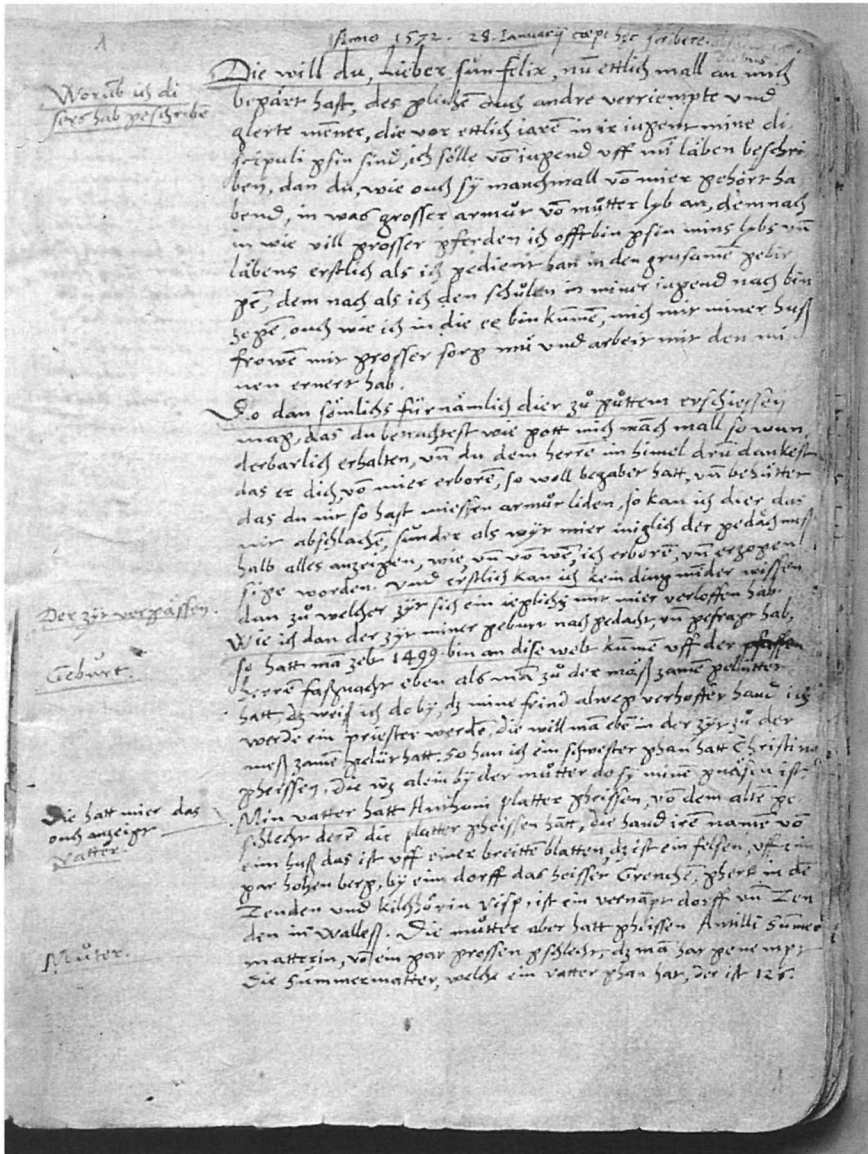 Anno 1572. 28. Ianuarij cœpi hęc scribere.
Worūb ich di
sers hab gschribē
Die will du, Lieber sun Felix, nū ettlich mall an mich
begärt hast, des glichē ouch andre verriempte und
glerte mēner, die vor ettlich iarē in ir iugent mine di
scipuli gsin sind, ich sölle vō iugend uff mī läben beschri
ben, dan du, wie ouch sy manchmall vō mier gehört ha
bend, in was grosser armůt vō můtter lyb an, demnach
in wie vill grosser gferden ich offt bin gsin mins lybs un̄
läbens erstlich als ich gedient han in den grusamē gebir
gē, dem nach als ich den schůlen in miner iugend nach bin
zogē, ouch wie ich in die ee bin kumē, mich mit miner huß
frowē mit grosser sorg mü und arbeit mit den mi
nen ernert hab.
Do dan sömlichs fürnämlich dier zů gůttem erschiessen
mag, das du betrachtest wie gott mich māch mall so wun
derbarlich erhalten, un̄ du dem herrē im himel drū dankest
das er dich, vō mier erborē, so woll begabet hatt, un̄ behüttet
das du nit so hast miessen armůt liden, so kan ich dier das
nit abschlachē, sunder als vyl mier müglich der gedächnuß
halb alles anzeigen, wie, un̄ vō wē, ich erborē, un̄ erzogen
sige worden. Und erstlich kan ich kein ding minder wissen
dan zů welcher zyt sich ein ieglichs mit mier verloffen hab.
Der zyt vergässen.
Wie ich dan der zyt miner geburt nach gedacht, un̄ gefragt hab,
so hatt mā zelt 1499 bin an dise welt kumē uff der
Geburt.
herrē faßnacht eben als mā zů der mäß zamē gelüttet
hatt, dz weis ich do by, dz mine frind alweg verhoffet hand ich
werde ein priester werdē, die will mā ebē in der zyt zů der
meß zamē gelüt hatt. So han ich ein schwester ghan hatt Christina
gheissen, die wz alein by der můtter do sy minen gnäsen ist
Die hatt mier das
ouch anzeigt
vatter.
Min vatter hatt Anthoni platter gheissen, vō dem altē ge
schlecht derē die platter gheissen hātt, die hand irē namē vō
eim huß das ist uff einer breitten blatten, dz ist ein felsen, uff eim
gar hohen berg, by eim dorff das heisset Grenchē, ghert in dē
Zenden und kilchhörin visp, ist ein vernāpt dorff un̄ Zen
den in Walleß. Die můtter aber hatt gheissen Antilli Summer
Můter.
matterin, vō eim gar grossen gschlecht, dz mā hat genempt
die Summermatter, welche ein vatter ghan hat, der ist 126.